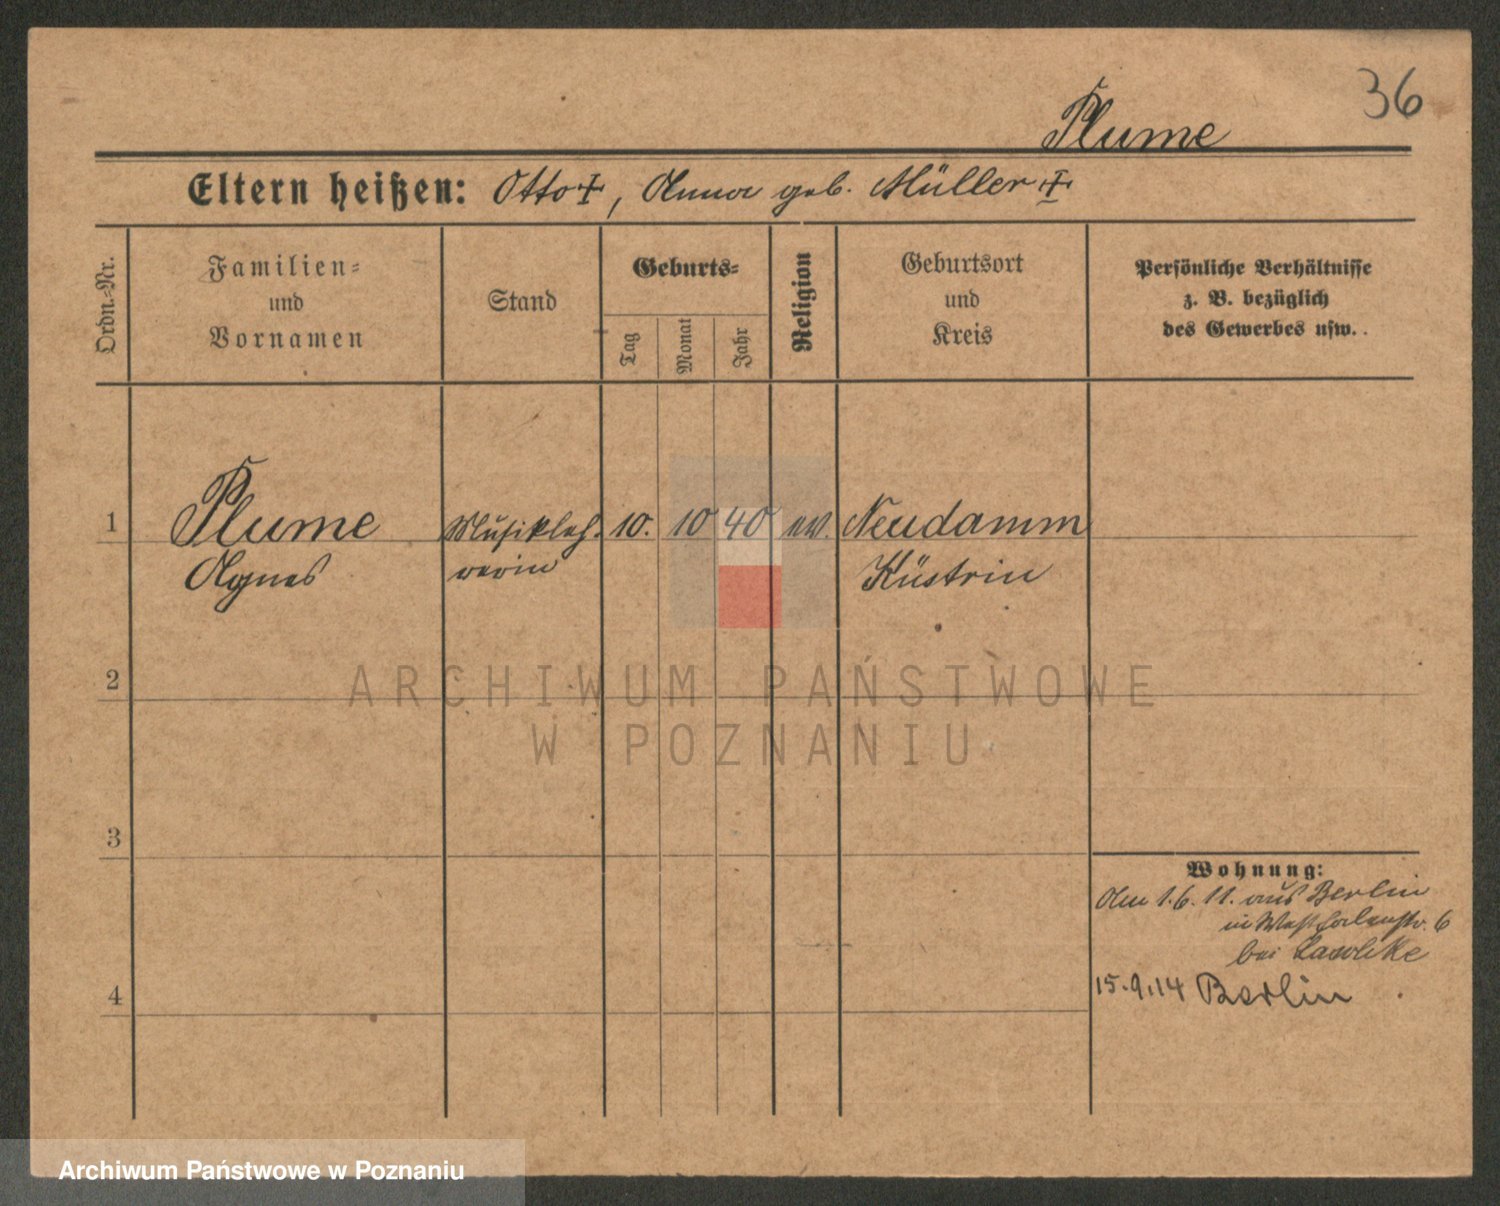 36
Plume
Eltern heißen: Otto +, Anna geb. Müller +
Ordn.=Nr.
Familien=
und
Vornamen
Stand
Geburts=
Tag
Monat
Jahr
Religion
Geburtsort
und
Kreis
Persönliche Verhältnisse
z. B. bezüglich
des Gewerbes usw. .
1
Plume
Agnes
Musikleh-
rerin
10.
10
40
ev.
Neudamm
Küstrin
2
3
4
Wohnung:
Am 1.6.11. aus Berlin
in Westfalenstr. 6
bei
15.9.14 Berlin
ARCHIWUM PAŃSTWOWE
W POZNANIU
Archiwum Państwowe w Poznaniu